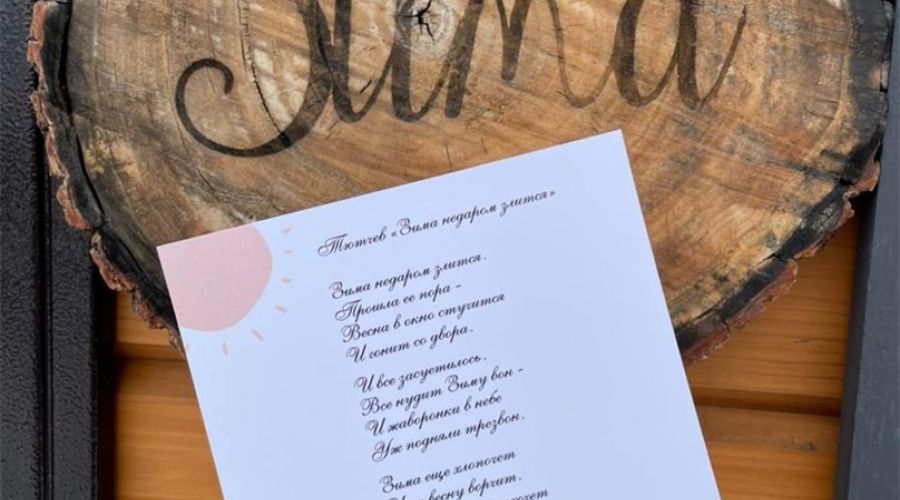 Зима
Тютчев «Зима недаром злится»
Зима недаром злится.
Прошла ее пора -
Весна в окно стучится
И гонит со двора.
И все засуетилось.
Все нудит Зиму вон -
И жаворонки в небе
Уж подняли трезвон.
Зима еще хлопочет
весну ворчит.